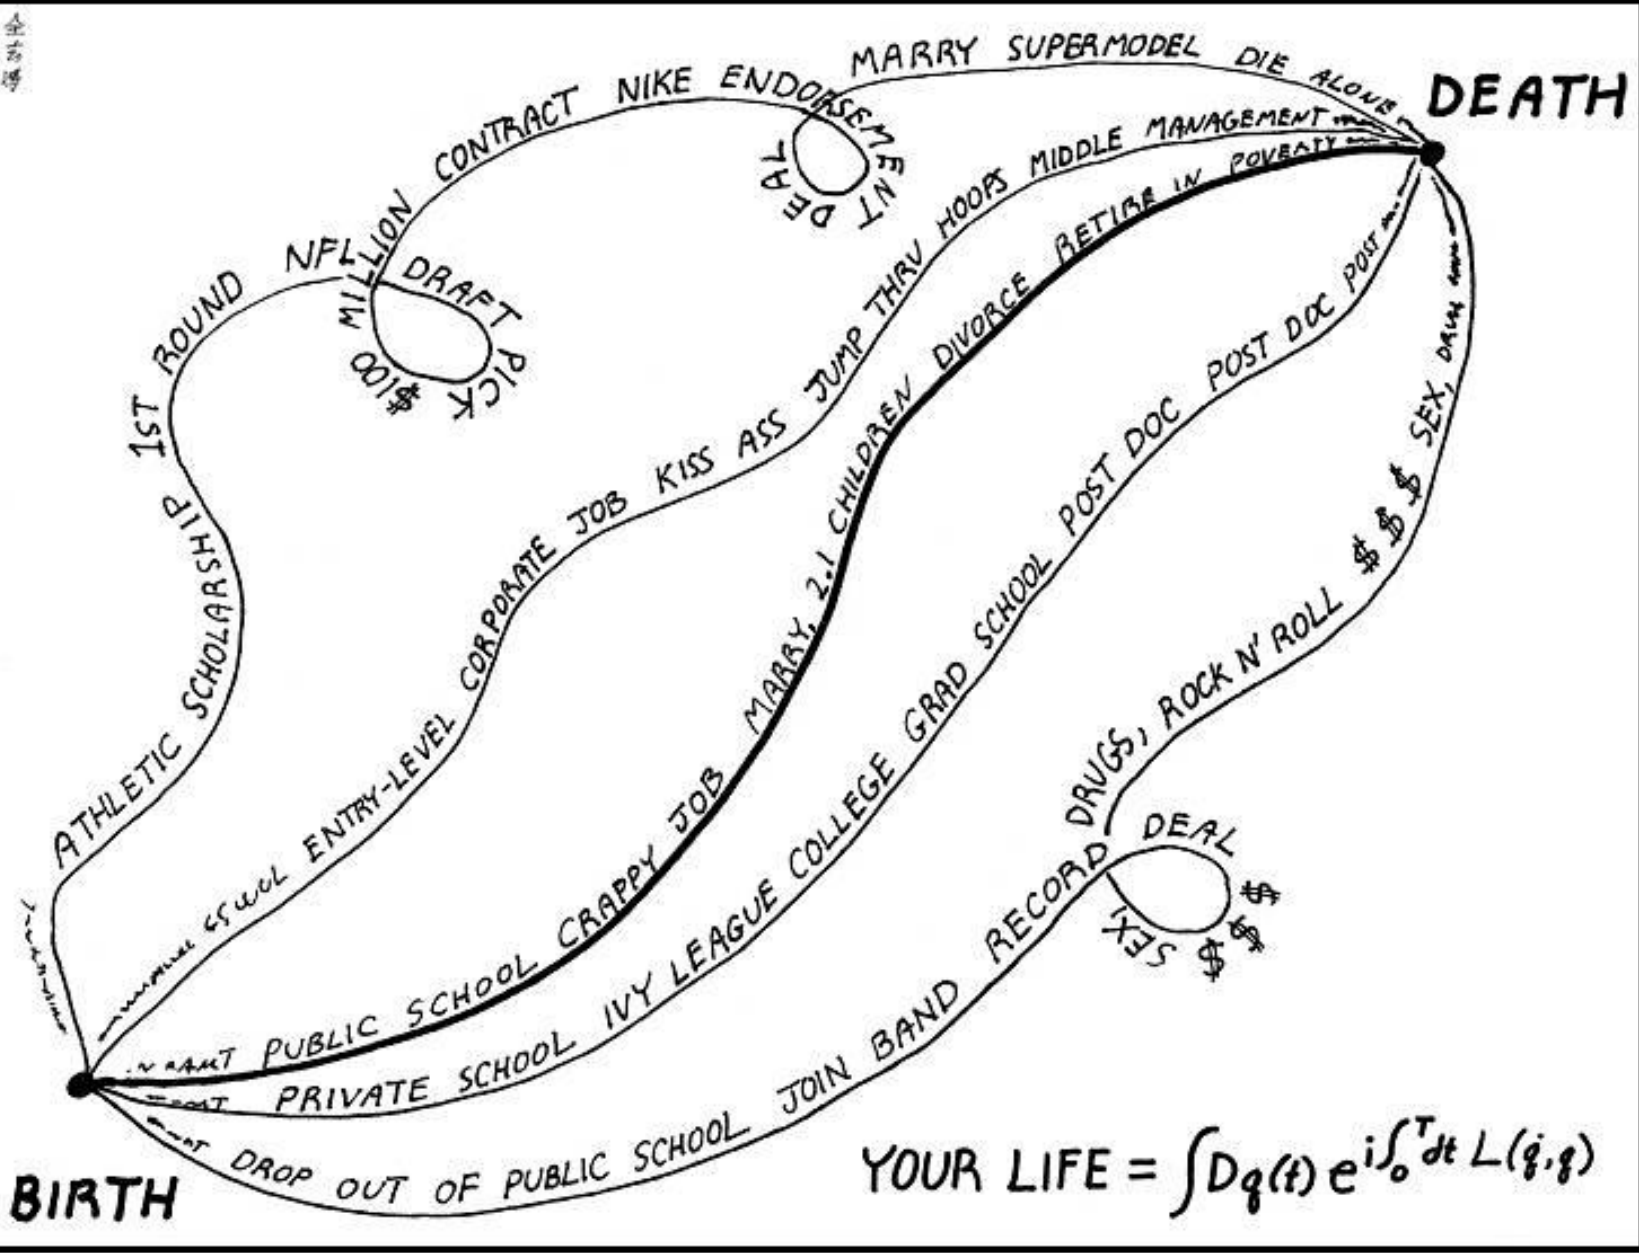 全
DEATH
ATHLETIC SCHOLARSHIP 1ST ROUND NFL DRAFT PICK $100 MILLION CONTRACT NIKE ENDORSEMENT DEAL MARRY SUPERMODEL DIE ALONE
ENTRY-LEVEL CORPORATE JOB KISS ASS JUMP THRU HOOPS MIDDLE MANAGEMENT
PUBLIC SCHOOL CRAPPY JOB MARRY, 2.1 CHILDREN DIVORCE RETIRE IN POVERTY
PRIVATE SCHOOL IVY LEAGUE COLLEGE GRAD SCHOOL POST DOC POST DOC POST
DROP OUT OF PUBLIC SCHOOL JOIN BAND RECORD DEAL $ $ $ SEX, DRUGS, ROCK N' ROLL $ $ $ SEX,
BIRTH
YOUR LIFE = ∫Dq(t) e^{i∫₀ᵀdt L(q̇,q)}